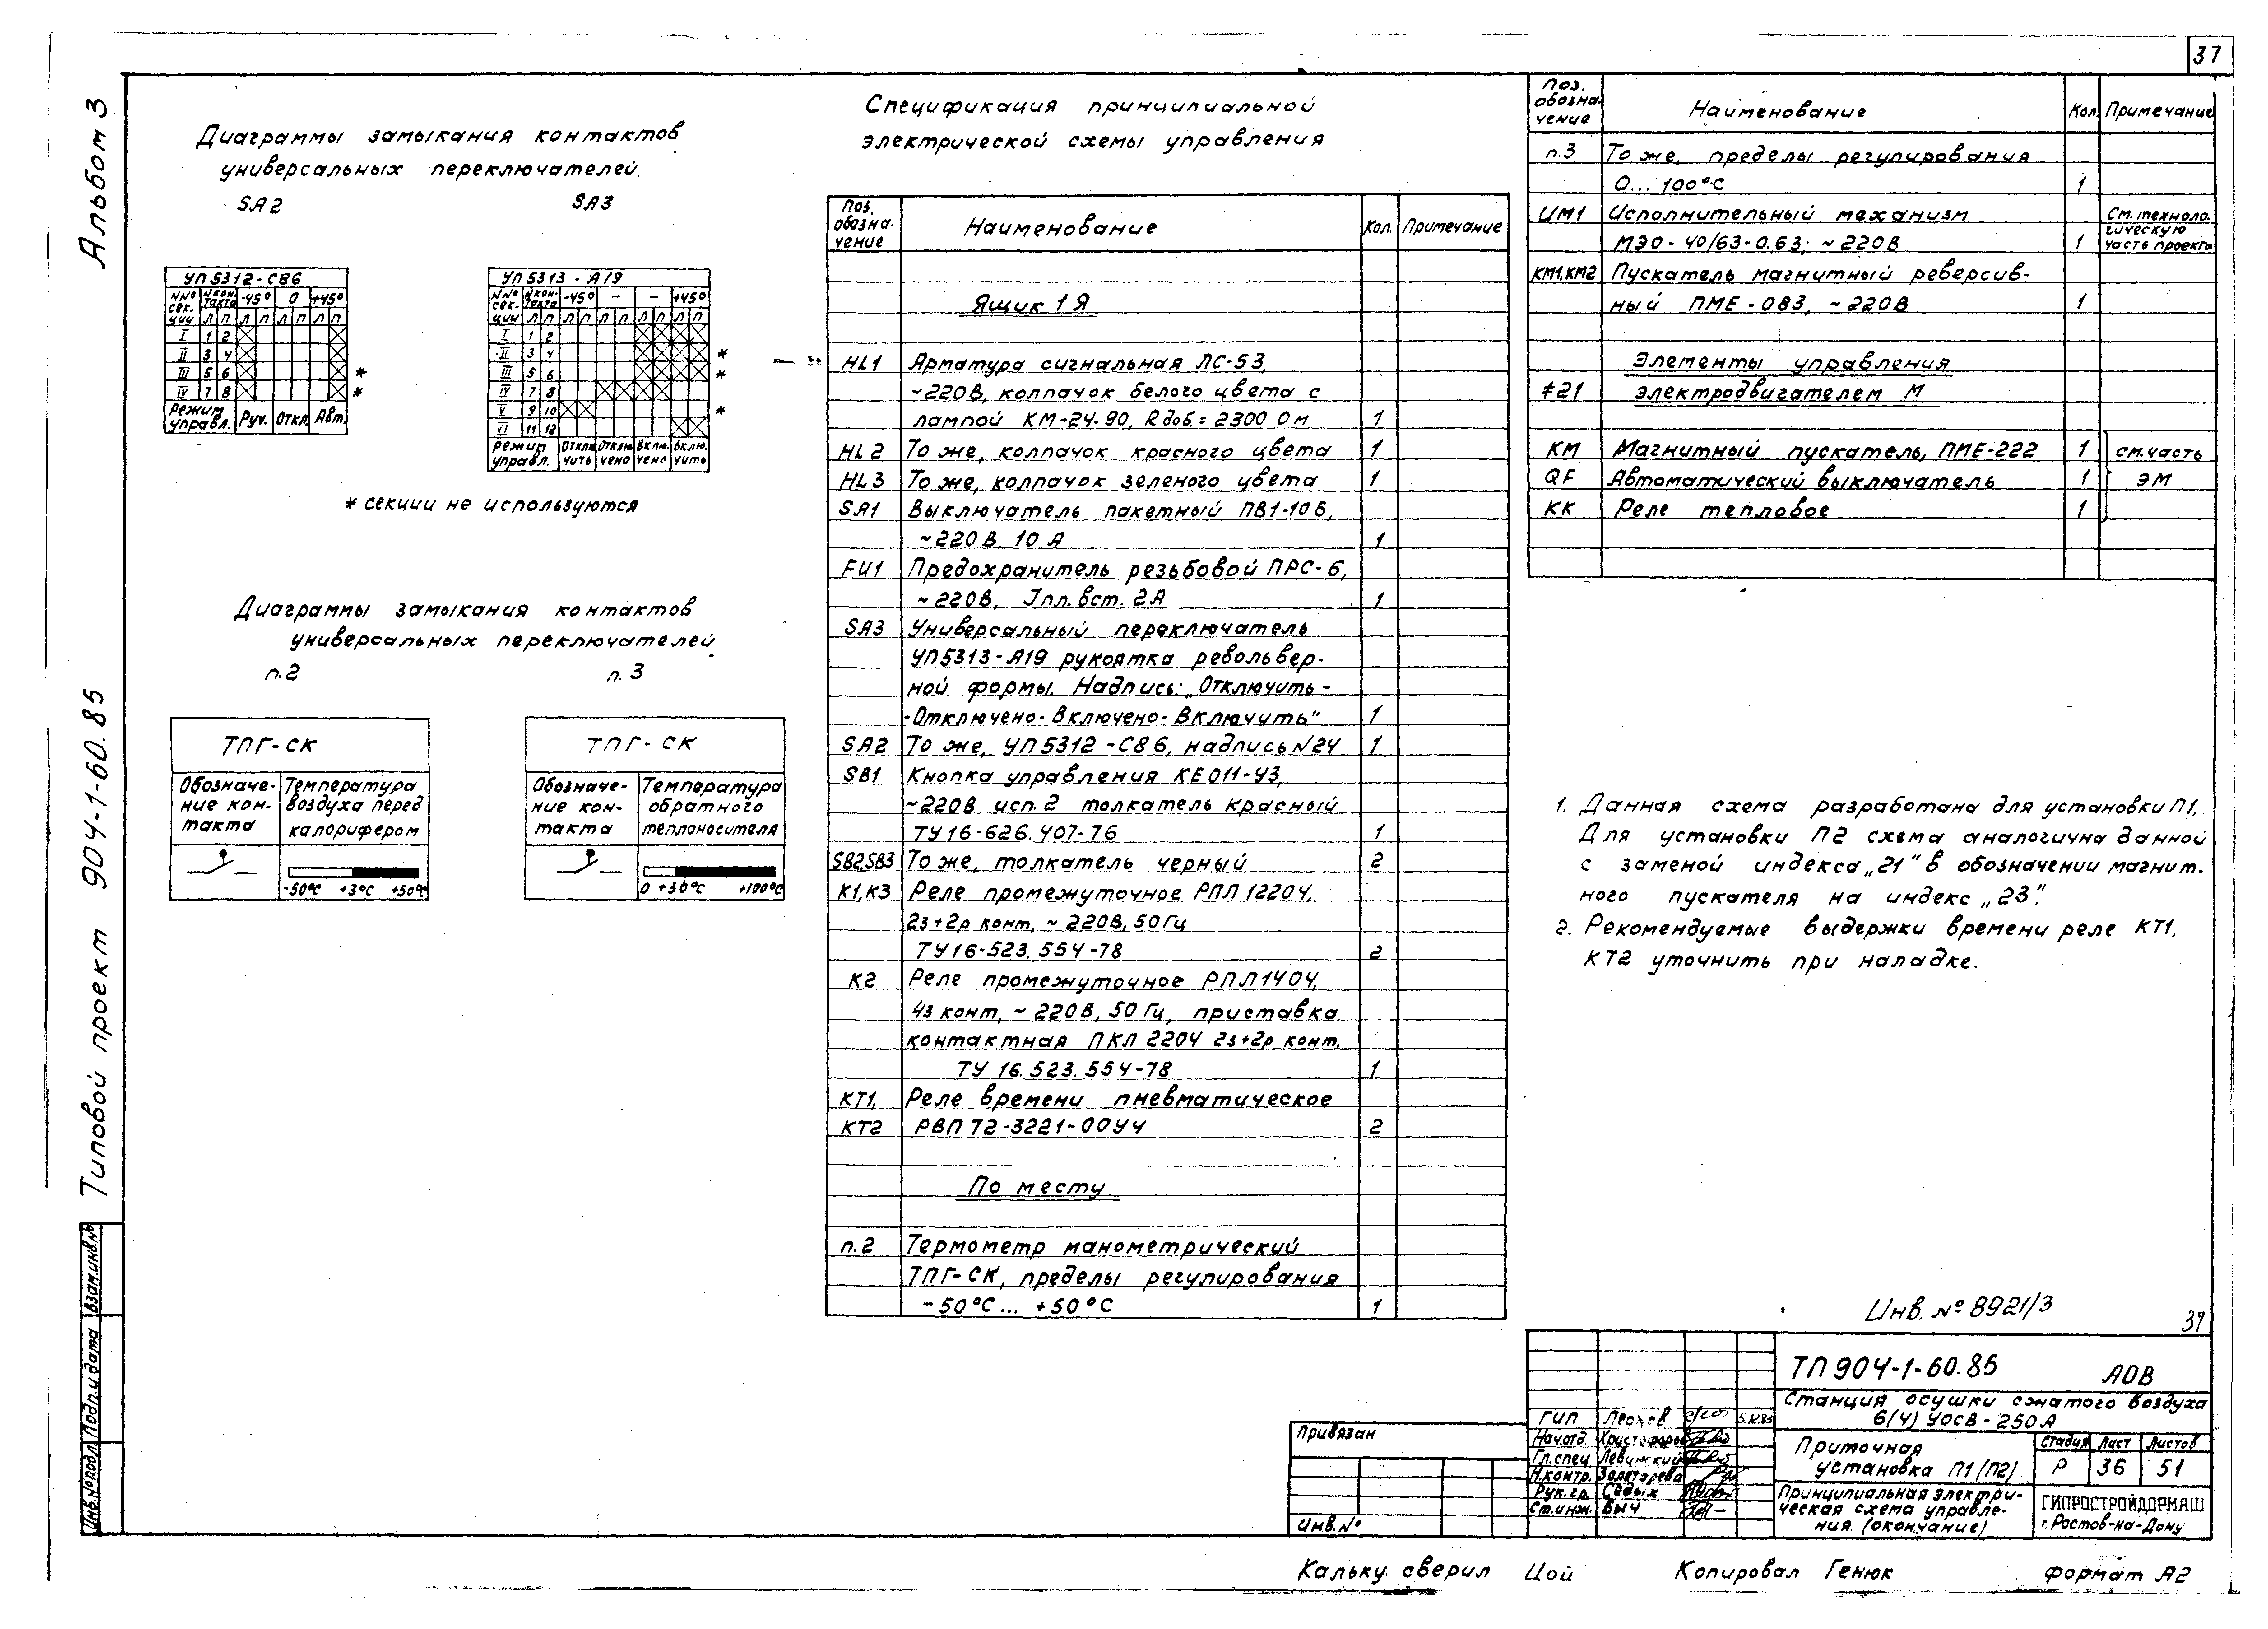 37
Альбом 3
Типовой проект 904-1-60.85
Диаграммы замыкания контактов
универсальных переключателей.
SA2
SA3
УП5312-С86
NNº сек. ции
N кон. такта
-45º 0 +45º
Л П Л П Л П Л П
I 1 2
II 3 4
III 5 6 *
IV 7 8 *
Режим управл.
Руч. Откл. Авт.
УП5313-А19
NNº сек. ции
N кон. такта
-45º - - +45º
Л П Л П Л П Л П Л П
I 1 2
II 3 4 *
III 5 6 *
IV 7 8
V 9 10 *
VI 11 12
Режим управл.
Отклю чить
Отклю чено
Вклю. чено
Вклю. чить
* секции не используются
Диаграммы замыкания контактов
универсальных переключателей
п.2
п.3
ТПГ-СК
Обозначе- ние кон- такта
Температура воздуха перед калорифером
-50ºС +3ºС +50ºС
ТПГ-СК
Обозначе- ние кон- такта
Температура обратного теплоносителя
0 +30ºС +100ºС
Спецификация принципиальной
электрической схемы управления
Поз. обозна- чение
Наименование
Кол.
Примечание
Ящик 1Я
HL1 Арматура сигнальная ЛС-53,
~220В, колпачок белого цвета с
лампой КМ-24-90, Rдоб.=2300 Ом 1
HL2 То же, колпачок красного цвета 1
HL3 То же, колпачок зеленого цвета 1
SA1 Выключатель пакетный ПВ1-10Б,
~220В. 10А 1
FU1 Предохранитель резьбовой ПРС-6,
~220В, Iпл.вст. 2А 1
SA3 Универсальный переключатель
УП5313-А19 рукоятка револьвер-
ной формы. Надпись: „Отключить-
-Отключено-Включено-Включить" 1
SA2 То же, УП5312-С86, надпись N24 1
SB1 Кнопка управления КЕ011-У3,
~220В исп.2 толкатель красный
ТУ16-626.407-76 1
SB2,SB3 То же, толкатель черный 2
К1,К3 Реле промежуточное РПЛ12204,
2з+2р конт, ~220В, 50Гц
ТУ16-523.554-78 2
К2 Реле промежуточное РПЛ1404,
4з конт, ~220В, 50Гц, приставка
контактная ПКЛ 2204 2з+2р конт.
ТУ 16.523.554-78 1
КТ1, Реле времени пневматическое
КТ2 РВП72-3221-00У4 2
По месту
п.2 Термометр манометрический
ТПГ-СК, пределы регулирования
-50ºС... +50ºС 1
Поз. обозна- чение
Наименование
Кол.
Примечание
п.3 То же, пределы регулирования
0...100ºС 1
ИМ1 Исполнительный механизм
МЭО-40/63-0.63; ~220В 1
См. техноло- гическую часть проекта
КМ1,КМ2 Пускатель магнитный реверсив-
ный ПМЕ-083, ~220В 1
Элементы управления
≠21 электродвигателем М
КМ Магнитный пускатель, ПМЕ-222 1 см. часть
QF Автоматический выключатель 1 ЭМ
КК Реле тепловое 1
1. Данная схема разработана для установки П1.
Для установки П2 схема аналогична данной
с заменой индекса „21" в обозначении магнит-
ного пускателя на индекс „23".
2. Рекомендуемые выдержки времени реле КТ1,
КТ2 уточнить при наладке.
Инв. № 8921/3
37
ТП 904-1-60.85 АОВ
Станция осушки сжатого воздуха
6(4) УОСВ-250А
Приточная
установка П1 (П2)
Стадия Лист Листов
Р 36 51
Принципиальная электри-
ческая схема управле-
ния. (окончание)
ГИПРОСТРОЙДОРМАШ
г. Ростов-на-Дону
ГИП Леонов
Нач.отд. Христофоров
Гл.спец. Левинский
Н.контр. Золотарева
Рук.гр. Седых
Ст.инж. Быч
Привязан
Инв.№
Взам.инв.№
Подп. и дата
Инв.№подл.
Кальку сверил Цой
Копировал Генюк
Формат А2